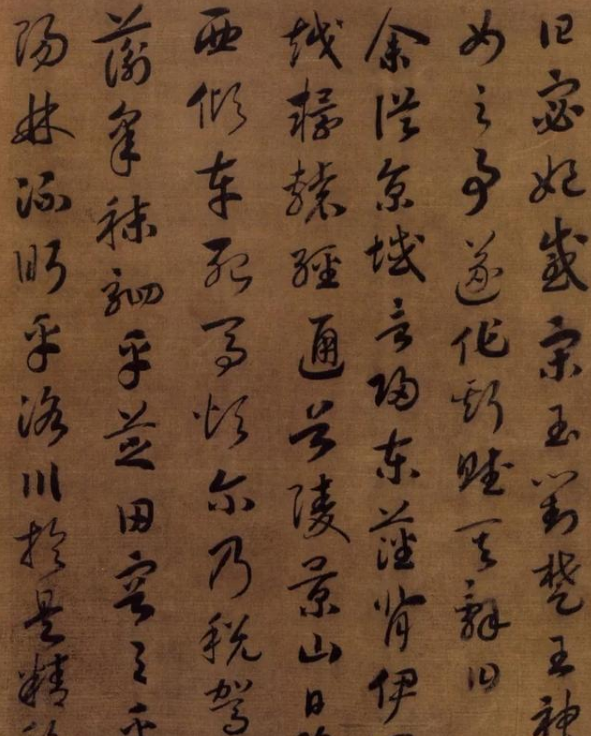 曰宓妃感宋玉對楚王神
女之事遂作斯賦其辭曰
余從京域言歸東藩背伊
越轘轅經通谷陵景山日
西傾車殆馬煩尓乃稅駕
蘅皋秣駟乎芝田容與乎
陽林流眄乎洛川於是精